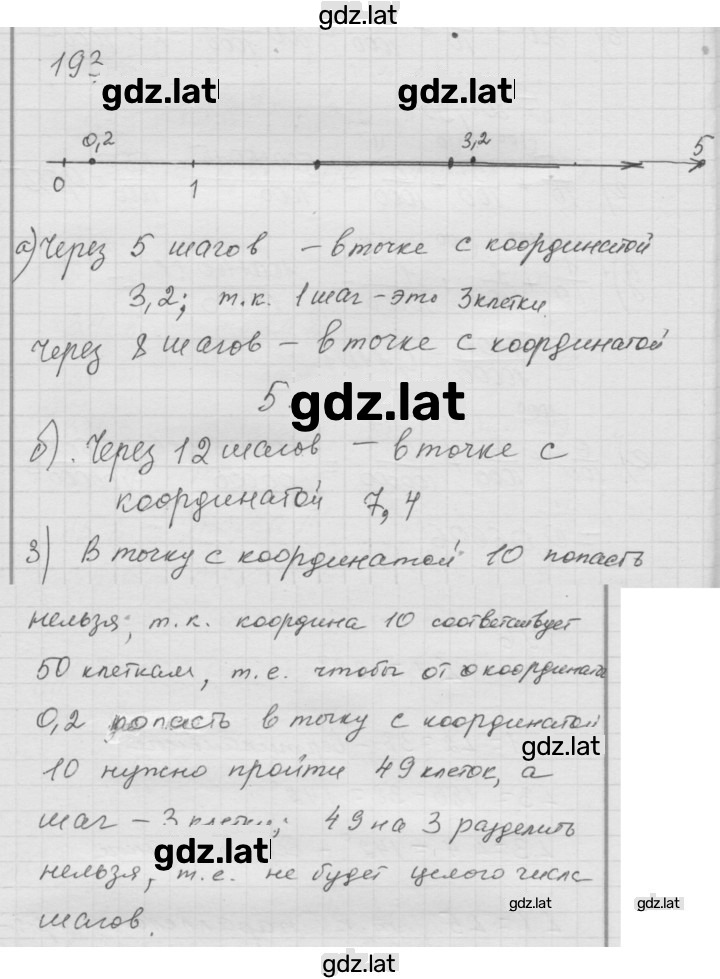 gdz.lat
192
gdz.lat gdz.lat
0,2 3,2 5
0 1
а) Через 5 шагов – в точке с координатой
3,2; т.к. 1 шаг – это 3 клетки
Через 8 шагов – в точке с координатой
5 gdz.lat
б). Через 12 шагов – в точке с
координатой 7,4
3) В точку с координатой 10 попасть
нельзя, т.к. координа 10 соответствует
50 клеткам, т.е. чтобы от координата
0,2 попасть в точку с координатой
gdz.lat
10 нужно пройти 49 клеток, а
шаг – 3 клетки; 49 на 3 разделить
gdz.lat
нельзя, т.е. не будет целого числа
шагов.
gdz.lat gdz.lat
gdz.lat